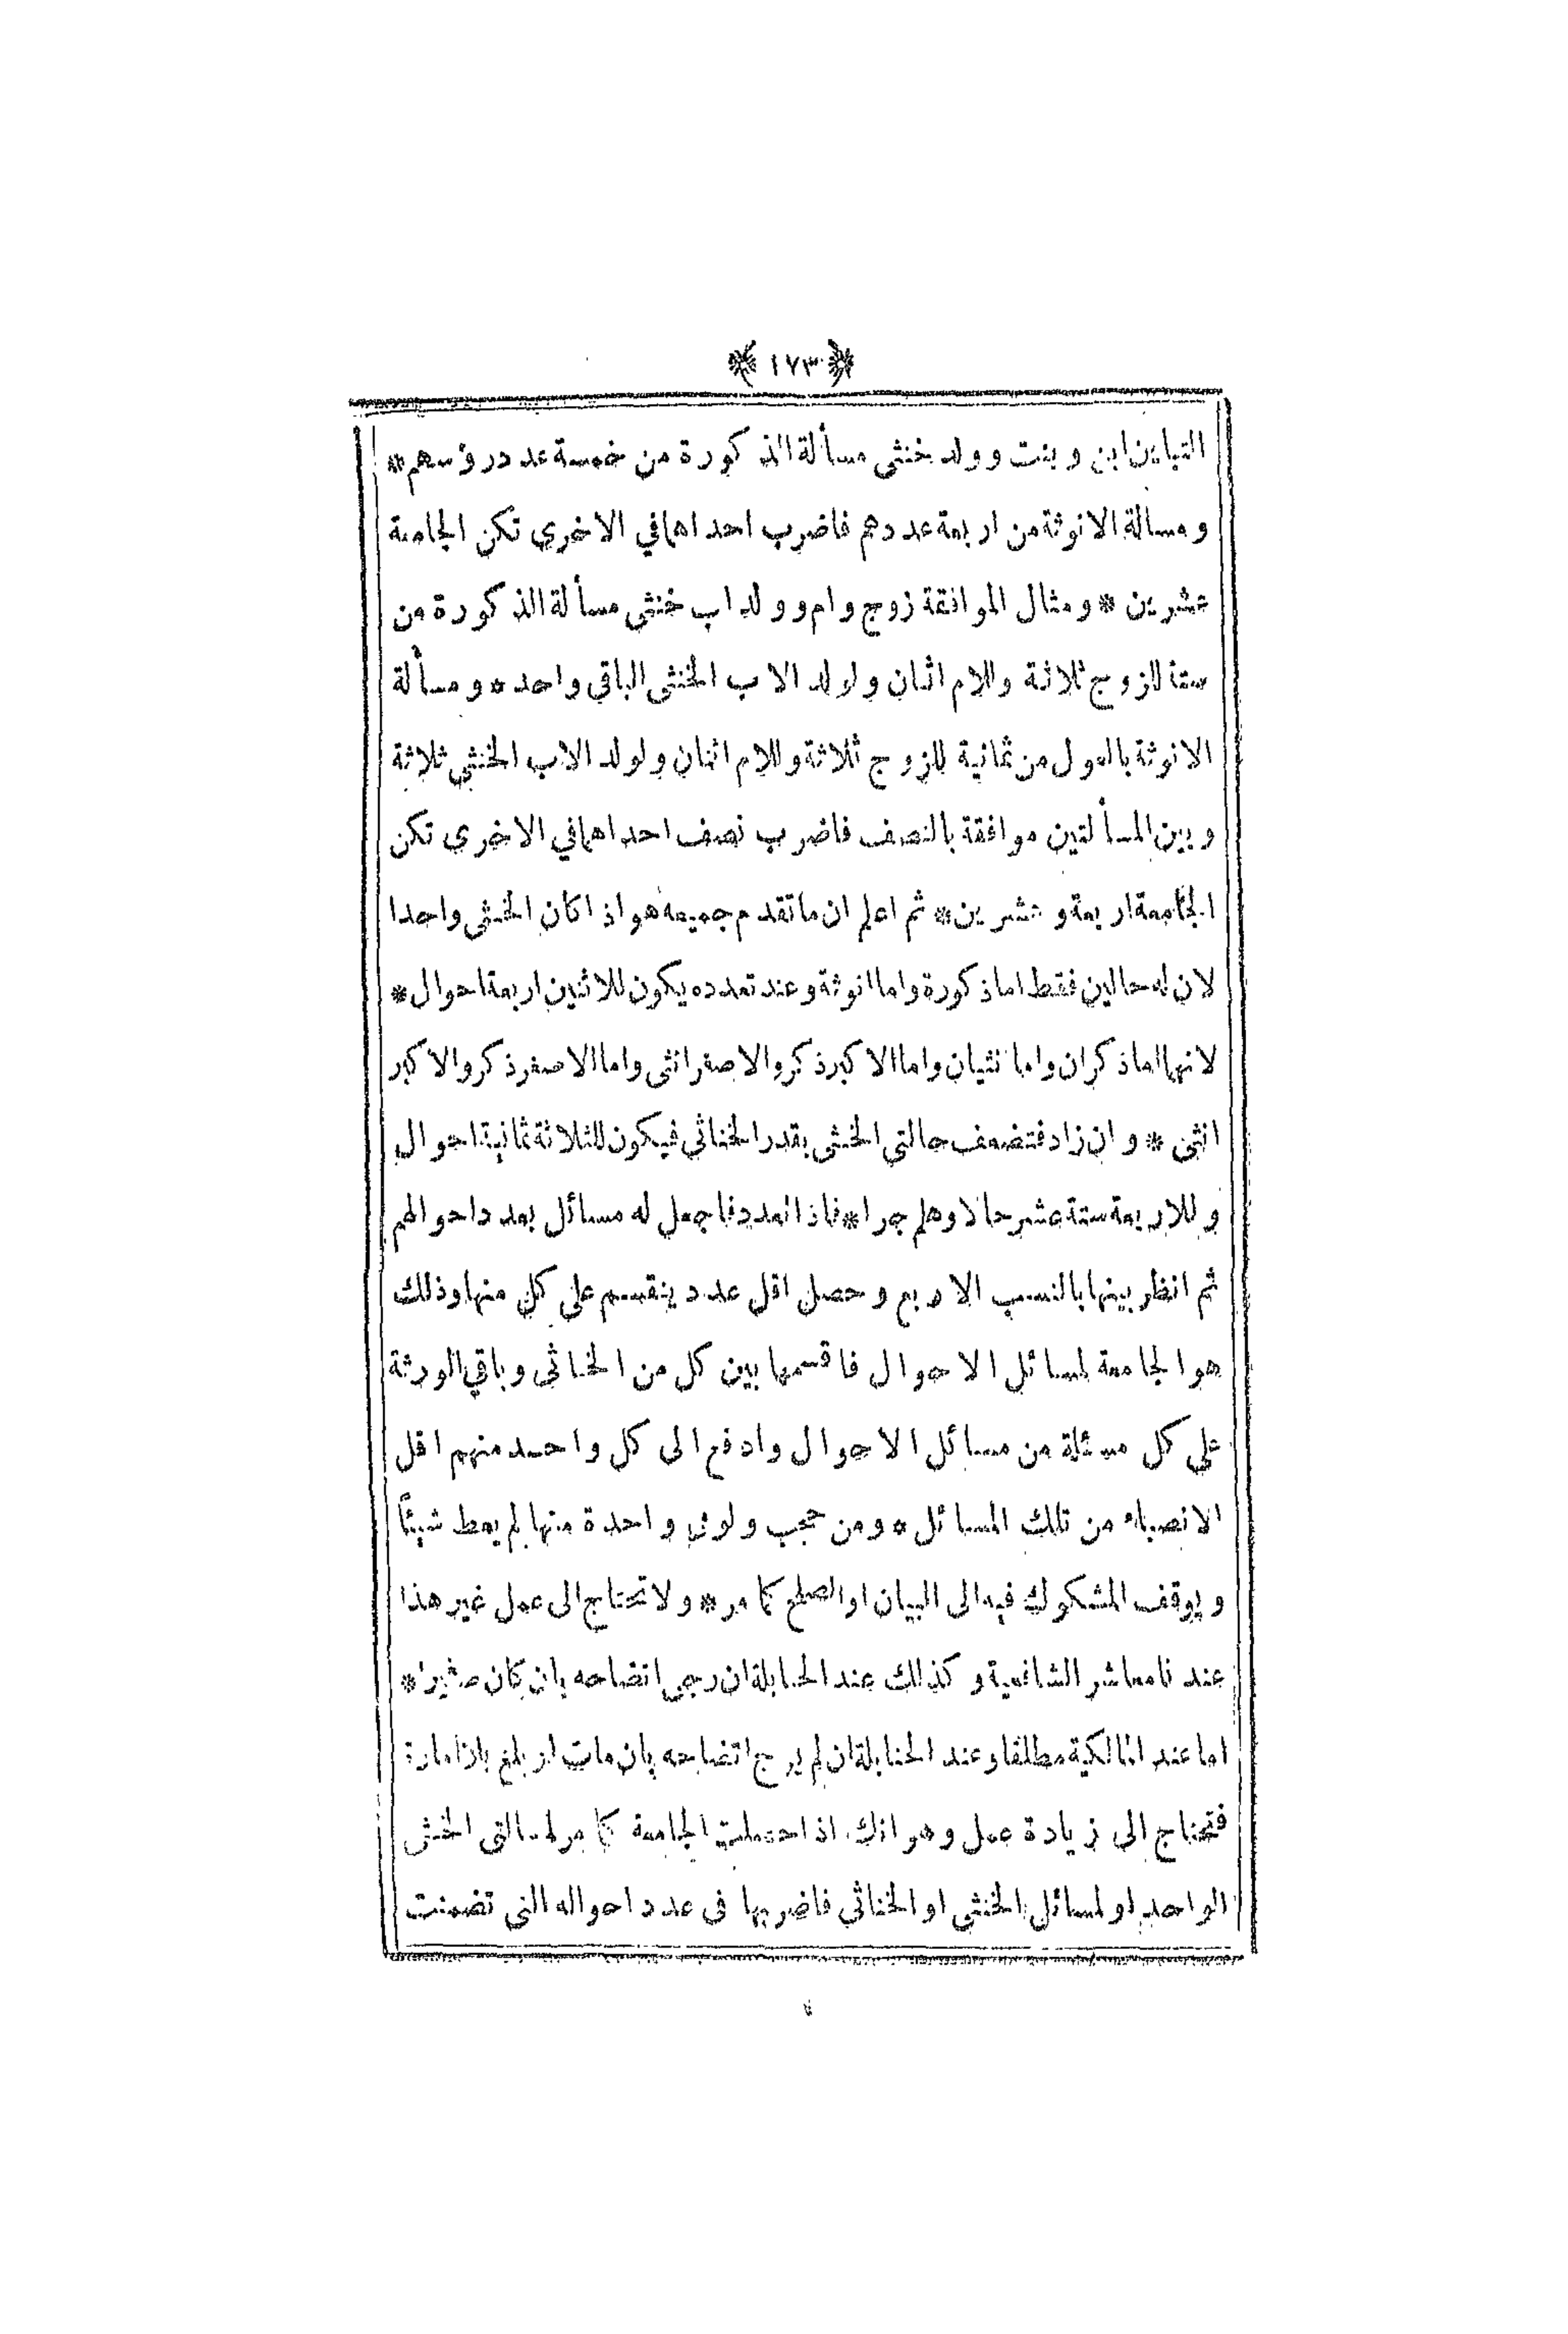 ﴿ ١٧٣ ﴾
التباين ابن وبنت وولد خنثى مسألة الذكورة من خمسة عدد رؤسهم *
ومسألة الانوثة من اربعة عددهم فاضرب احداهما في الاخرى تكن الجامعة
عشرين * ومثال الموافقة زوج وام وولد اب خنثى مسألة الذكورة من
ستة للزوج ثلاثة وللام اثنان ولولد الاب الخنثى الباقي واحد * ومسألة
الانوثة بالعول من ثمانية للزوج ثلاثة وللام اثنان ولولد الاب الخنثى ثلاثة
وبين المسألتين موافقة بالنصف فاضرب نصف احداهما في الاخرى تكن
الجامعة اربعة وعشرين * ثم اعلم ان ما تقدم جميعه هو اذا كان الخنثى واحدا
لان له حالين فقط اما ذكورة واما انوثة وعند تعدده يكون للاثنين اربعة احوال *
لانهما اما ذكران واما نثيان واما الاكبر ذكر والاصغر انثى واما الاصغر ذكر والاكبر
انثى * وان زاد فتضعف حالتي الخنثى بقدر الخناثى فيكون للثلاثة ثمانية احوال
وللاربعة ستة عشر حالا وهلم جرا * فاذا تعدد فاجعل له مسائل بعدد احوالهم
ثم انظر بينها بالنسب الاربع وحصل اقل عدد ينقسم على كل منها وذلك
هو الجامعة لمسائل الاحوال فاقسمها بين كل من الخناثى وباقي الورثة
على كل مسئلة من مسائل الاحوال وادفع الى كل واحد منهم اقل
الانصباء من تلك المسائل * ومن حجب ولو في واحدة منها لم يعط شيئًا
ويوقف المشكوك فيه الى البيان او الصلح كما مر * ولا تحتاج الى عمل غير هذا
عندنا معاشر الشافعية وكذلك عند الحنابلة ان رجي اتضاحه بان كان صغيرا *
اما عند المالكية مطلقا وعند الحنابلة ان لم يرج اتضاحه بان مات او بلغ بلا امارة
فتحتاج الى زيادة عمل وهو انك اذا حصلت الجامعة كما مر لمسالتي الخنثى
الواحد او لمسائل الخنثى او الخناثى فاضربها في عدد احواله التي تضمنت